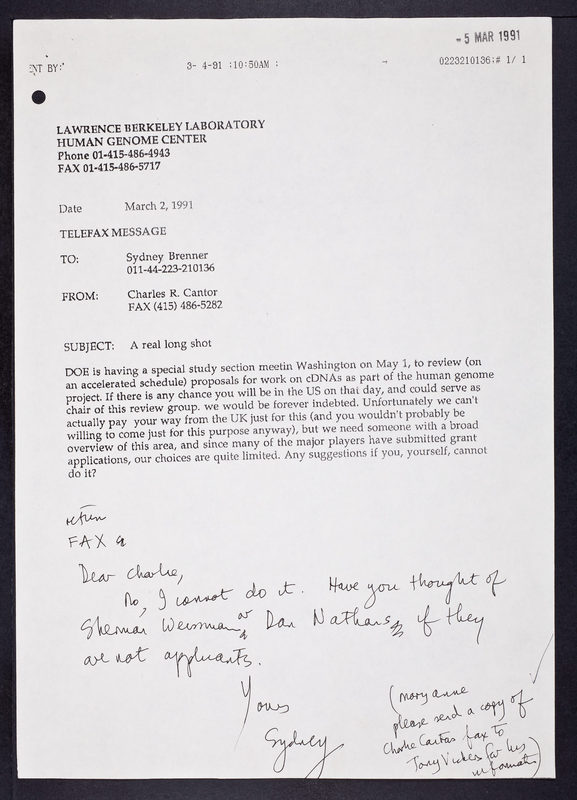 - 5 MAR 1991
ENT BY:
3- 4-91 ;10:50AM ;
→
0223210136;# 1/ 1
LAWRENCE BERKELEY LABORATORY
HUMAN GENOME CENTER
Phone 01-415-486-4943
FAX 01-415-486-5717
Date March 2, 1991
TELEFAX MESSAGE
TO: Sydney Brenner
011-44-223-210136
FROM: Charles R. Cantor
FAX (415) 486-5282
SUBJECT: A real long shot
DOE is having a special study section meetin Washington on May 1, to review (on
an accelerated schedule) proposals for work on cDNAs as part of the human genome
project. If there is any chance you will be in the US on that day, and could serve as
chair of this review group. we would be forever indebted. Unfortunately we can't
actually pay your way from the UK just for this (and you wouldn't probably be
willing to come just for this purpose anyway), but we need someone with a broad
overview of this area, and since many of the major players have submitted grant
applications, our choices are quite limited. Any suggestions if you, yourself, cannot
do it?
return
FAX
Dear Charlie,
No, I cannot do it. Have you thought of
Sherman Weissman or Dan Nathans if they
are not applicants.
Yours
Sydney
(Mary anne
please send a copy of
Charlie Cantor's fax to
Tony Vickers for his
information)